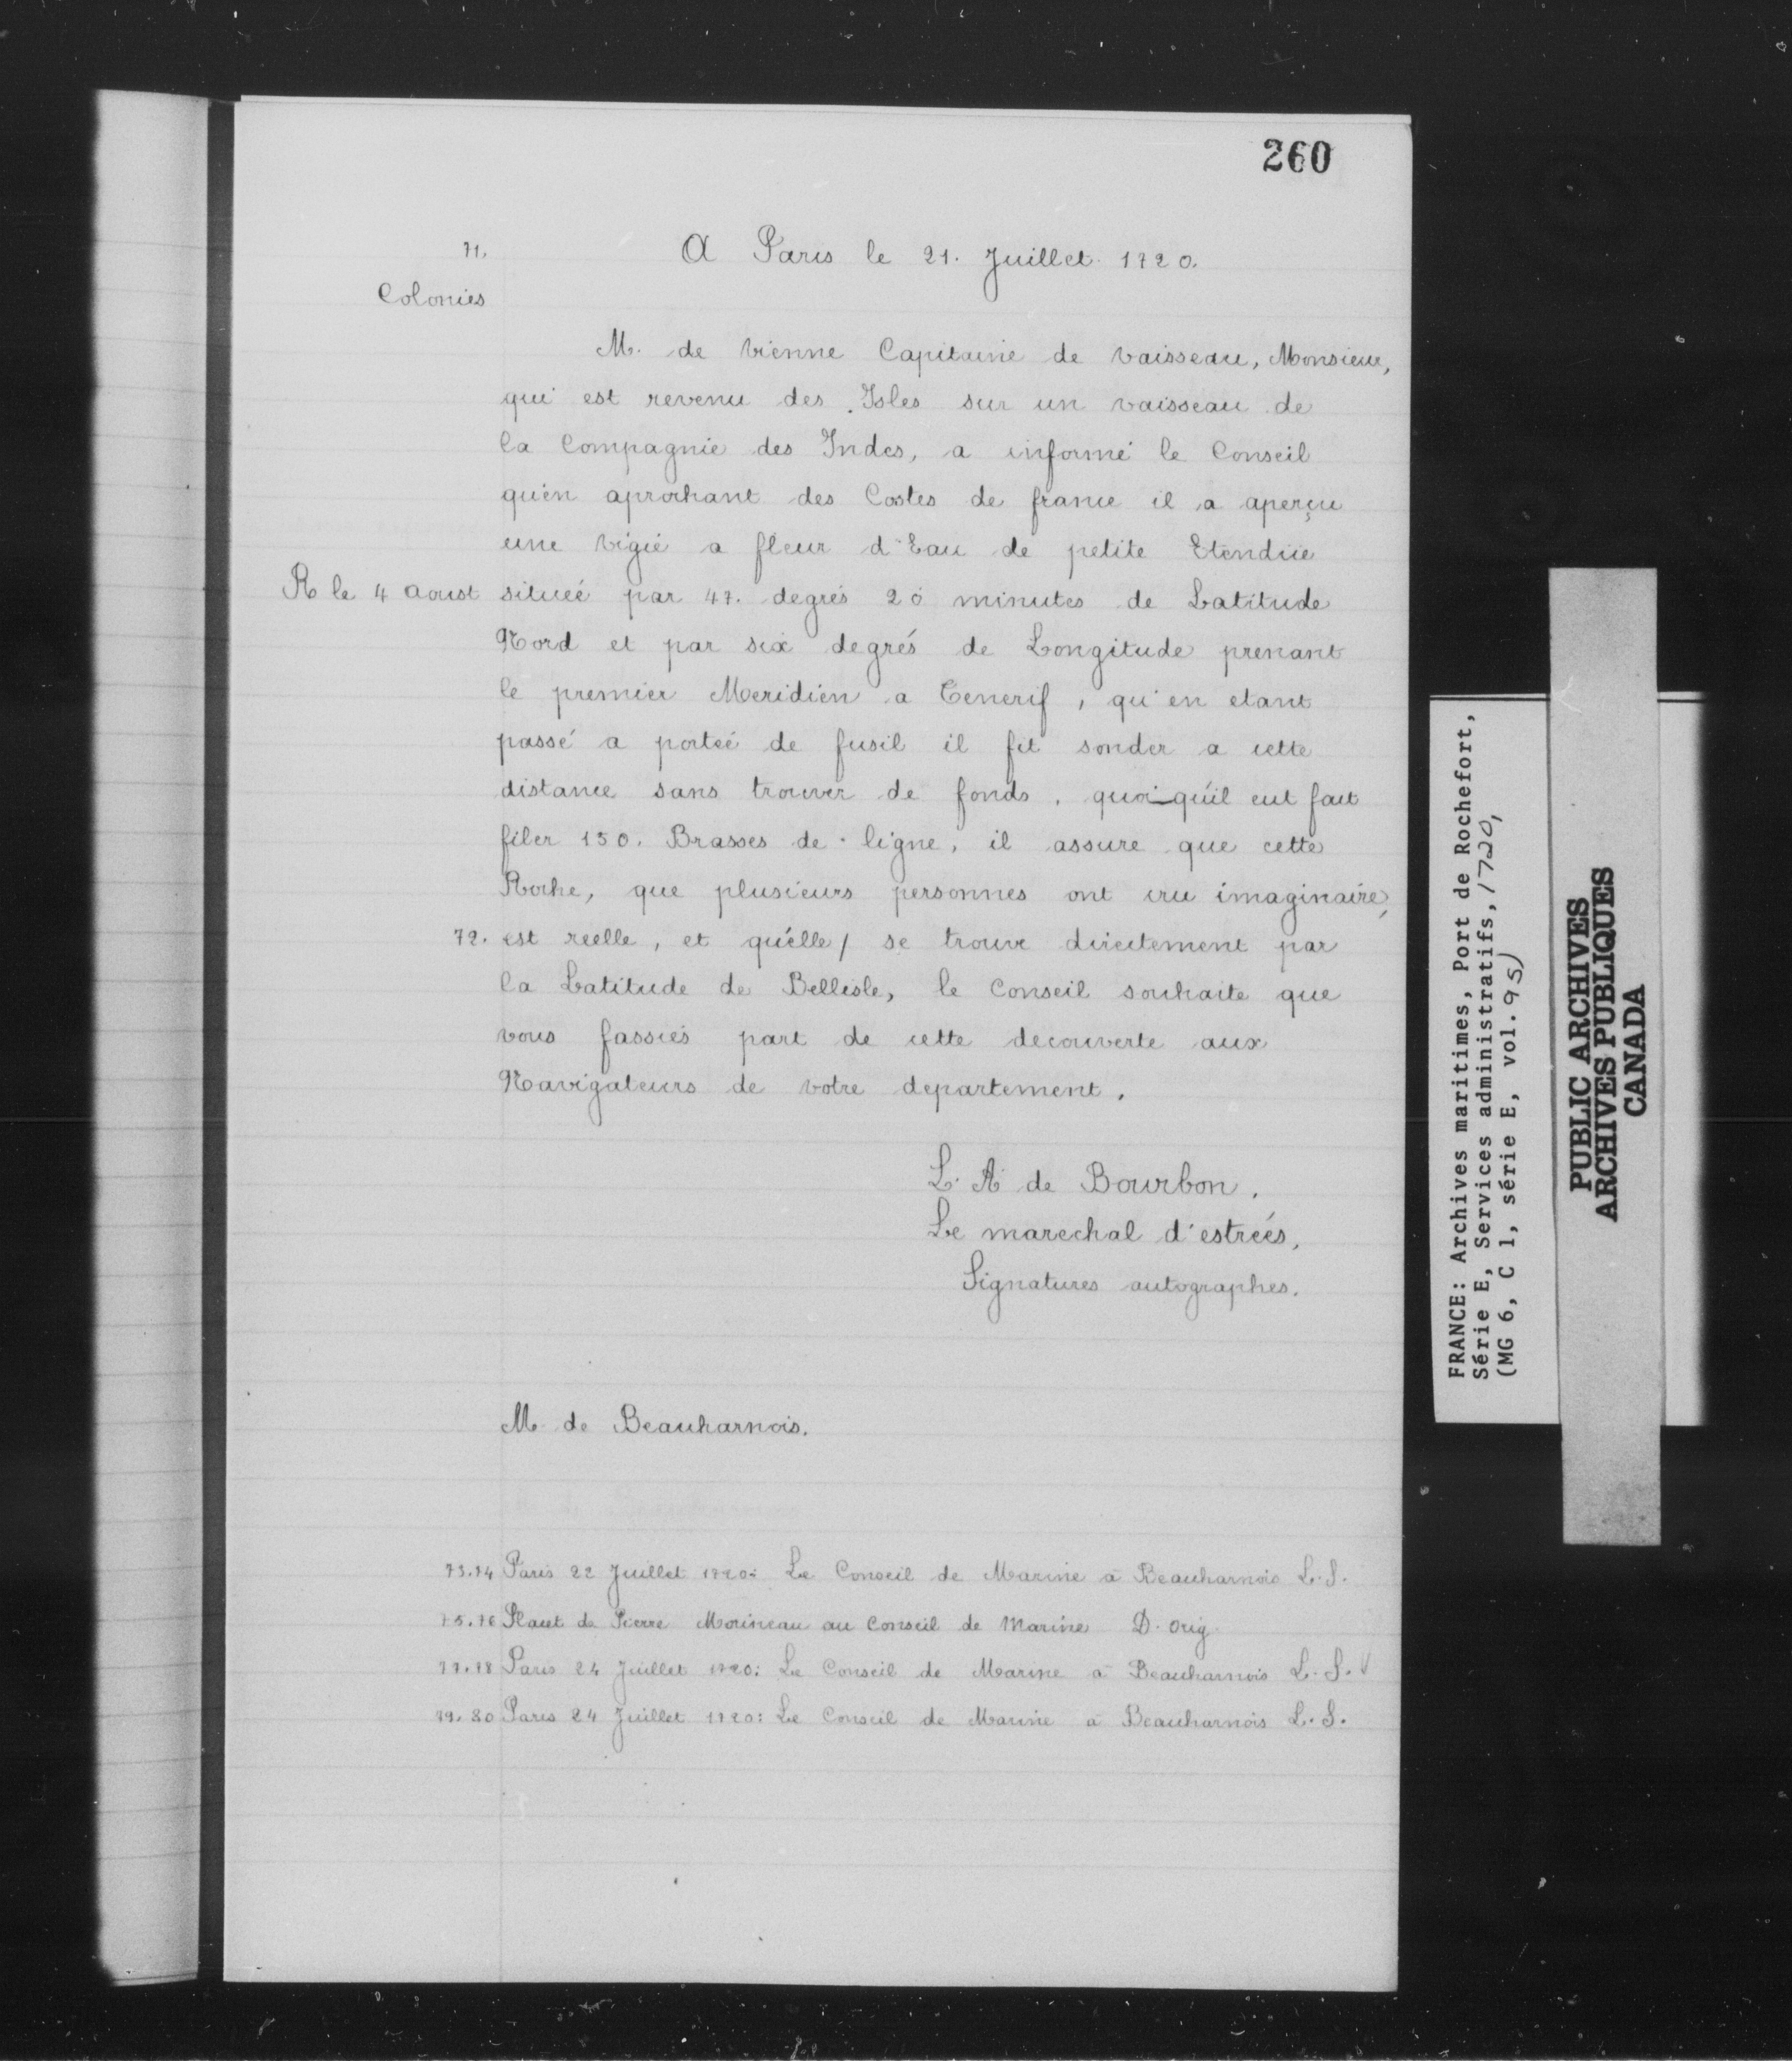 260
71.
A Paris le 21. Juillet 1720.
Colonies
M. de Vienne Capitaine de vaisseau, Monsieur,
qui est revenu des Isles sur un vaisseau de
la Compagnie des Indes, a informé le Conseil
qu'en aprochant des Costes de france il a aperçu
une vigie a fleur d'Eau de petite Etendüe
R le 4 aoust située par 47. degrés 20 minutes de Latitude
Nord et par six degrés de Longitude prenant
le premier Meridien a Tenerif, qu'en etant
passé a porteé de fusil il fit sonder a cette
distance sans trouver de fonds, quoi-qu'il eut fait
filer 150. Brasses de ligne, il assure que cette
Roche, que plusieurs personnes ont cru imaginaire,
72. est reelle, et qu'elle / se trouve directement par
la Latitude de Bellisle, le Conseil souhaite que
vous fassiés part de cette decouverte aux
Navigateurs de votre departement.
L. A de Bourbon.
Le marechal d'estreés.
Signatures autographes.
M de Beauharnois.
73.74 Paris 22 Juillet 1720: Le Conseil de Marine à Beauharnois L.S.
75.76 Placet de Pierre Morineau au Conseil de Marine D. orig.
77.78 Paris 24 Juillet 1720: Le Conseil de Marine à Beauharnois L.S.
79.80 Paris 24 Juillet 1720: Le Conseil de Marine à Beauharnois L.S.
FRANCE: Archives maritimes, Port de Rochefort,
Série E, Services administratifs, 1720,
(MG 6, C 1, série E, vol. 95)
PUBLIC ARCHIVES
ARCHIVES PUBLIQUES
CANADA